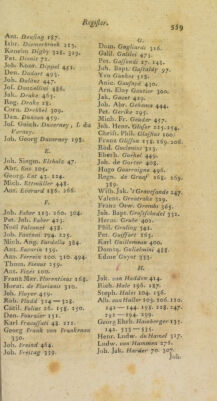 Register.
559
Ant. Deusing 187.
Isbr. Diemerbroek 213.
Kenelm Digby 328. 329.
Pet. Dionis 72.
Joh. Konr. Dippel 451.
Den. Dodart 495.
Joh. Dolāus 447.
Jos. Donzellini 488.
Jak. Drake 465.
Rog. Drake 28.
Corn. Drebbel 309.
Dan. Duncan 459.
Jos. Guich. Duverney, f. du
Verney.
Joh. Georg Duvernoy 198.
E.
Joh. Sigm. Elsholz 47.
Abr. Ens 105.
Georg. Ent 43. 124.
Mich. Ettmüller 448.
Ant. Everard 186. 266.
F.
Joh. Faber 115. 260. 304.
Pet. Joh. Faber 423.
Noël Falconet 458.
Joh. Fantoni 194. 225.
Mich. Ang. Fardella 384.
Ant. Ferrein 100. 150. 494.
Thom. Fienus 259.
Ant. Fizes 100.
Franz Mar. Florentinus 268.
Horat. de Floriani 310.
Joh. Floyer 459.
Rob. Fludd 324 — 328.
Cāsil. Folius 26. 158. 250.
Den. Fournier 131.
Karl Fracassati 48. 211.
Georg Frank von Frankenau
330.
Joh. Freind 464.
Joh. Freitag 339.
G.
Dom. Gagliardi 316.
Galil. Galilei 475.
Pet. Gassendi 27. 141.
Joh. Bapt. Gastaldy 97.
Yvo Gaukes 518.
Anic. Gaufard 430.
Arn. Eloy Gautier 300.
Jak. Gavet 419.
Joh. Abr. Gehema 444.
Pet. Gerike 295.
Mich. Fr. Geuder 457.
Joh. Henr. Glaser 225. 254.
Christi. Phil. Gläser 284.
Franz Glisson 118. 169. 208.
Röd. Goclenius 323.
Eberh. Goekel 449.
Joh. de Gorter 403.
Hugo Gourraigne 496.
Regn. de Graaf 185. 269.
389.
Wilh. Jak. 's Gravesande 247.
Valent. Greatrake 329.
Franz Osw. Grembs 365.
Jak. Bapt. Großschedel 331.
Herm. Grube 401.
Phil. Grüling 341.
Pet. Guiffart 125.
Karl Guillemeau 400.
Domin. Gulielmini 488.
Edme Guyot 333.
H.
Jak. van Hadden 414.
Rich. Hale 196. 187.
Steph. Hales 104. 156.
Alb. von Haller 109. 206. 110.
141 — 144. 151. 228. 247.
292 — 294. 299.
Georg Erh. Hamberger 135.
142. 353 — 355.
Henr. Ludw. de Hamel 317.
Ludw. von Hammen 276.
Joh. Jak. Harder 70. 307.
Joh.